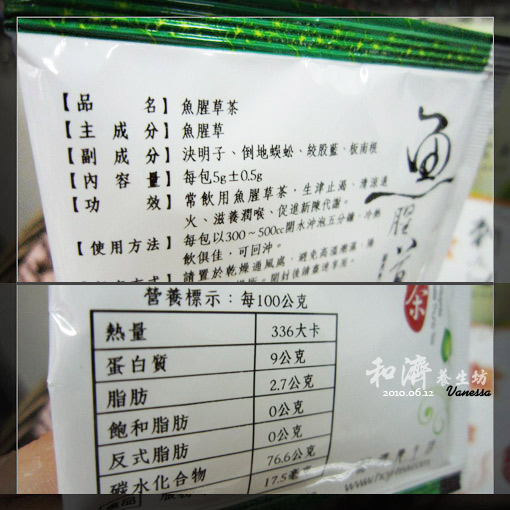 【品　　名】魚腥草茶
【主 成 分】魚腥草
【副 成 分】決明子、倒地蜈蚣、絞股藍、板南根
【內 容 量】每包5g±0.5g
【功　　效】常飲用魚腥草茶，生津止渴、清涼退
火、滋養潤喉、促進新陳代謝。
【使用方法】每包以300～500cc開水沖泡五分鐘，冷熱
飲俱佳，可回沖。
請置於乾燥通風處，避免高溫潮濕、陽
魚腥草
茶
營養標示：每100公克
熱量 336大卡
蛋白質 9公克
脂肪 2.7公克
飽和脂肪 0公克
反式脂肪 0公克
碳水化合物 76.6公克
17.5毫克
和濟養生坊
2010.06.12 Vanessa